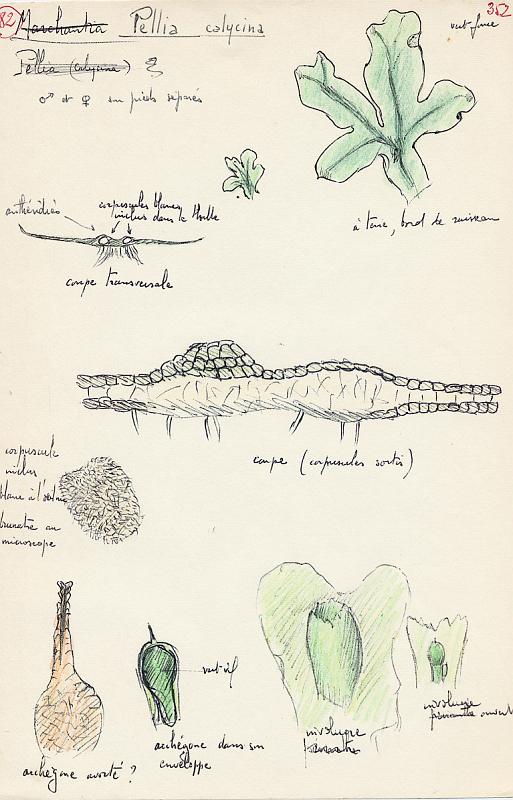 82
Marchantia Pellia calycina
352
Pellia (calycina)
♂ et ♀ sur pieds séparés
à terre, bord de ruisseau
anthéridies
corpuscules blancs
inclus dans le thalle
coupe transversale
coupe (corpuscules sortis)
corpuscule
inclus
blanc à l'
brunâtre au
microscope
vert vif
archégone dans son
enveloppe
archégone avorté ?
involucre
involucre
ouvert